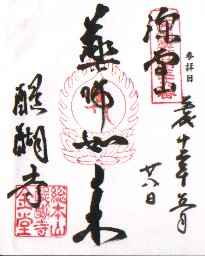 参拝日
廿八日
深雪山
薬師如来
醍醐寺
総本山
醍醐寺
金堂